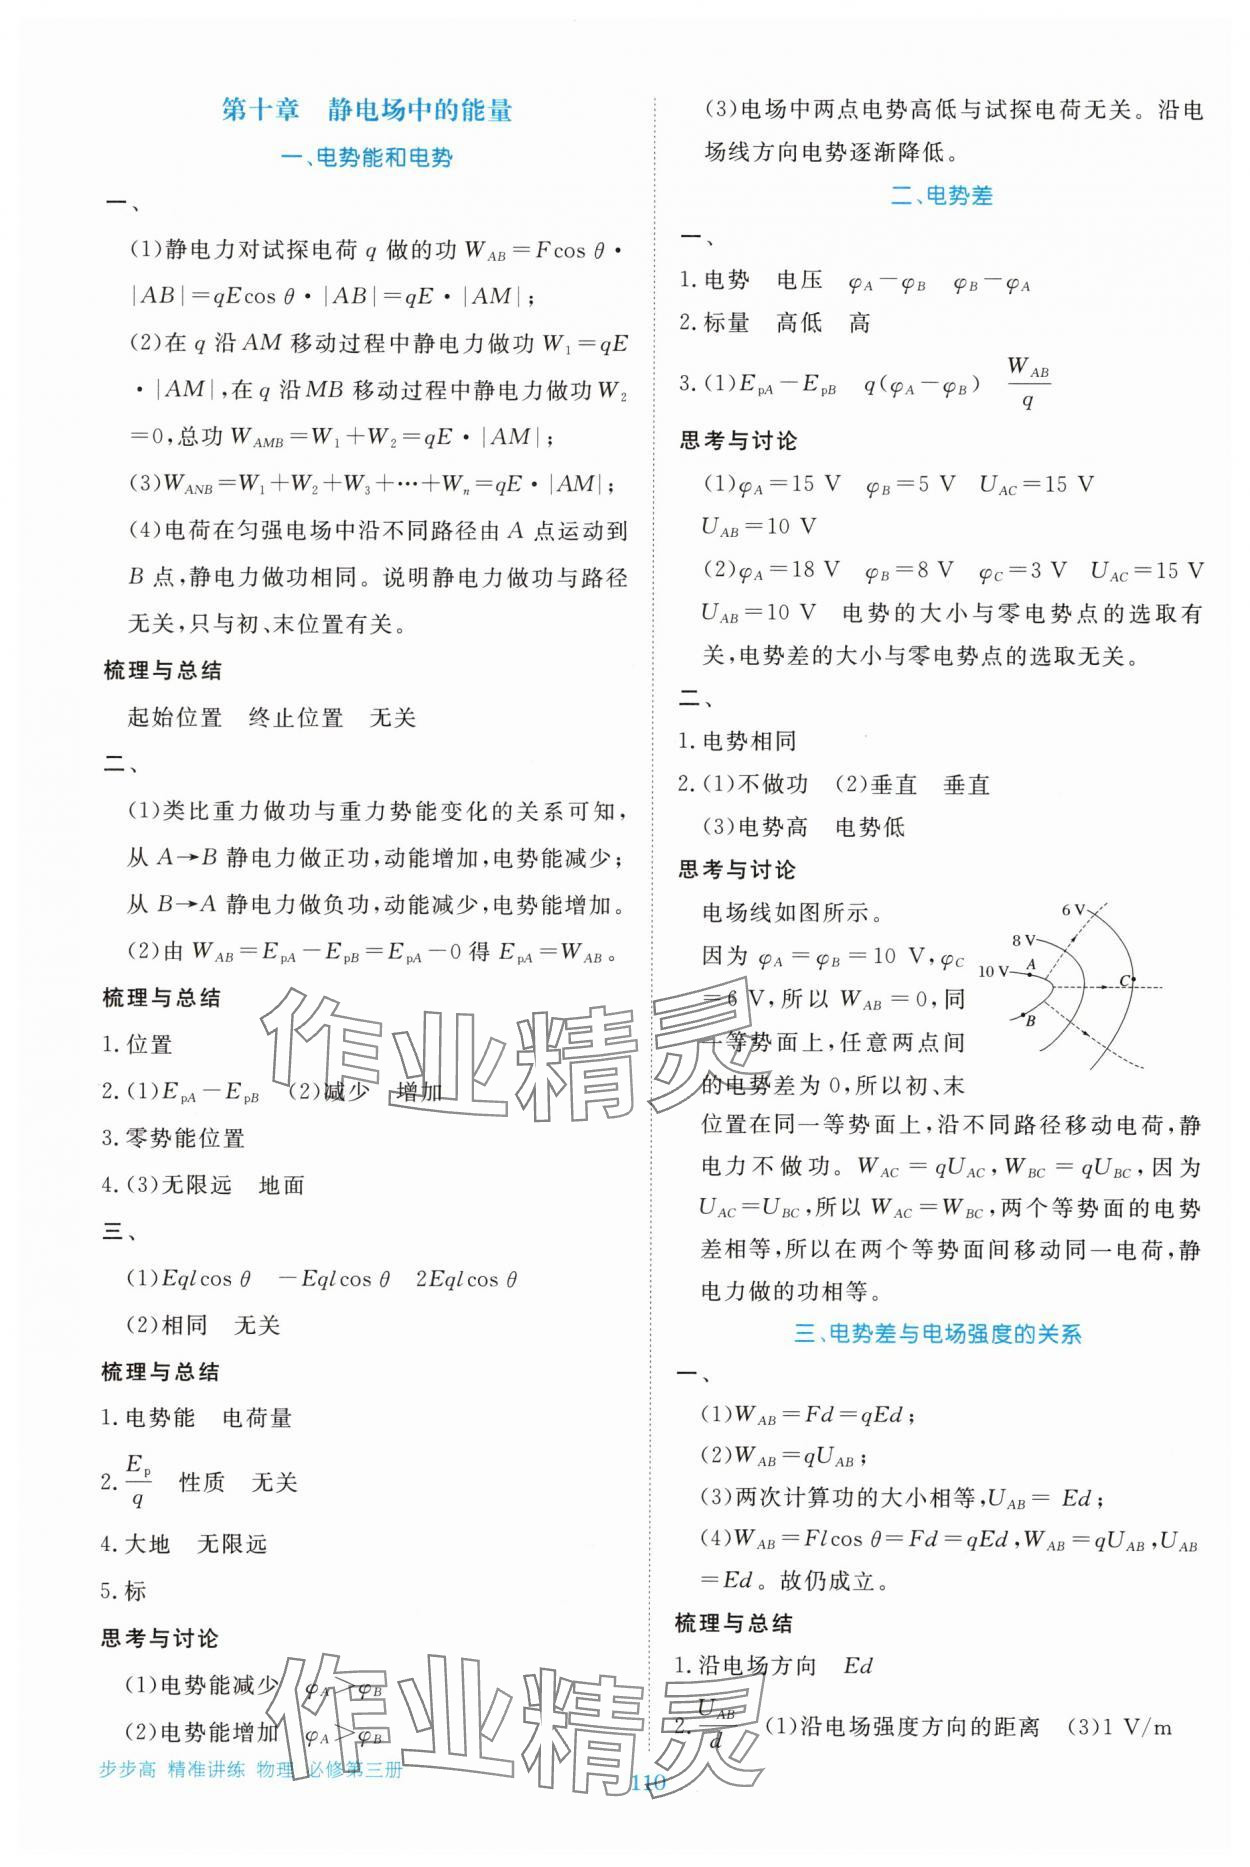 第十章 静电场中的能量
一、电势能和电势
一、
(1)静电力对试探电荷 q 做的功 W_AB=Fcos θ·
|AB|=qEcos θ·|AB|=qE·|AM|；
(2)在 q 沿 AM 移动过程中静电力做功 W₁=qE
·|AM|，在 q 沿 MB 移动过程中静电力做功 W₂
=0，总功 W_AMB=W₁+W₂=qE·|AM|；
(3)W_ANB=W₁+W₂+W₃+···+W_n=qE·|AM|；
(4)电荷在匀强电场中沿不同路径由 A 点运动到
B 点，静电力做功相同。说明静电力做功与路径
无关，只与初、末位置有关。
梳理与总结
起始位置 终止位置 无关
二、
(1)类比重力做功与重力势能变化的关系可知，
从 A→B 静电力做正功，动能增加，电势能减少；
从 B→A 静电力做负功，动能减少，电势能增加。
(2)由 W_AB=E_pA-E_pB=E_pA-0 得 E_pA=W_AB。
梳理与总结
1.位置
2.(1)E_pA-E_pB (2)减少 增加
3.零势能位置
4.(3)无限远 地面
三、
(1)Eqlcos θ -Eqlcos θ 2Eqlcos θ
(2)相同 无关
梳理与总结
1.电势能 电荷量
2.E_p/q 性质 无关
4.大地 无限远
5.标
思考与讨论
(1)电势能减少 φ_A>φ_B
(2)电势能增加 φ_A>φ_B
(3)电场中两点电势高低与试探电荷无关。沿电
场线方向电势逐渐降低。
二、电势差
一、
1.电势 电压 φ_A-φ_B φ_B-φ_A
2.标量 高低 高
3.(1)E_pA-E_pB q(φ_A-φ_B) W_AB/q
思考与讨论
(1)φ_A=15 V φ_B=5 V U_AC=15 V
U_AB=10 V
(2)φ_A=18 V φ_B=8 V φ_C=3 V U_AC=15 V
U_AB=10 V 电势的大小与零电势点的选取有
关，电势差的大小与零电势点的选取无关。
二、
1.电势相同
2.(1)不做功 (2)垂直 垂直
(3)电势高 电势低
思考与讨论
电场线如图所示。
因为 φ_A=φ_B=10 V，φ_C
=6 V，所以 W_AB=0，同
一等势面上，任意两点间
的电势差为 0，所以初、末
6 V
8 V
10 V
A
C
B
位置在同一等势面上，沿不同路径移动电荷，静
电力不做功。W_AC=qU_AC，W_BC=qU_BC，因为
U_AC=U_BC，所以 W_AC=W_BC，两个等势面的电势
差相等，所以在两个等势面间移动同一电荷，静
电力做的功相等。
三、电势差与电场强度的关系
一、
(1)W_AB=Fd=qEd；
(2)W_AB=qU_AB；
(3)两次计算功的大小相等，U_AB= Ed；
(4)W_AB=Flcos θ=Fd=qEd，W_AB=qU_AB，U_AB
=Ed。故仍成立。
梳理与总结
1.沿电场方向 Ed
2.U_AB/d (1)沿电场强度方向的距离 (3)1 V/m
步步高 精准讲练 物理 必修第三册
110
作业精灵
作业精灵